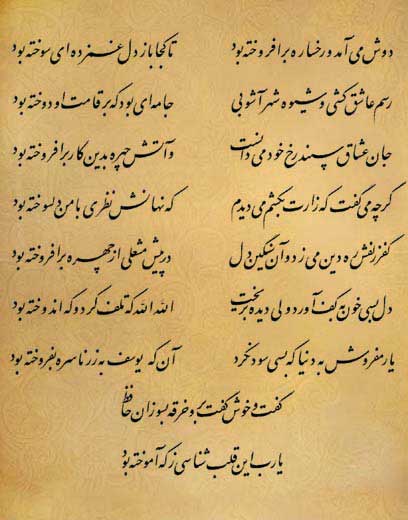 دوش می آمد و رخساره برافروخته بود تا کجا باز دل غمزده ای سوخته بود
رسم عاشق کشی و شیوه شهر آشوبی جامه ای بود که بر قامت او دوخته بود
جان عشاق سپند رخ خود می دانست و آتش چهره بدین کار برافروخته بود
گرچه می گفت که زارت بکشم می دیدم که نهانش نظری با من دلسوخته بود
کفر زلفش ره دین می زد و آن سنگین دل در پیش مشعلی از چهره برافروخته بود
دل بسی خون به کف آورد ولی دیده بریخت الله الله که تلف کرد و که اندوخته بود
یار مفروش به دنیا که بسی سود نکرد آن که یوسف به زر ناسره بفروخته بود
گفت و خوش گفت برو خرقه بسوزان حافظ
یارب این قلب شناسی ز که آموخته بود